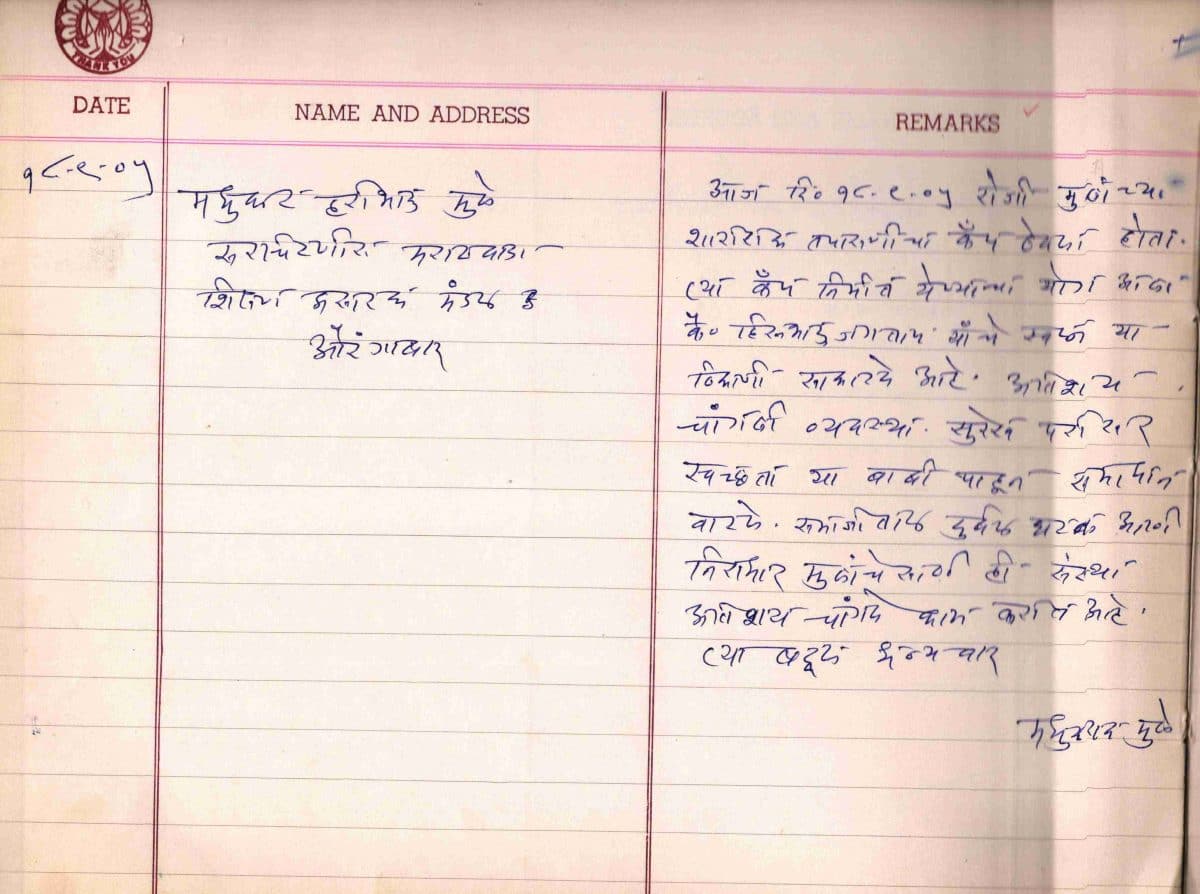 THANK YOU
DATE
NAME AND ADDRESS
REMARKS
१८-९-०५
मधुकर हरीभाऊ मुळे
सरचिटणीस मराठवाडा
शिक्षण प्रसारक मंडळ
औरंगाबाद
आज दि० १८.९.०५ रोजी मुलांच्या
शारिरिक तपासणीचा कँप ठेवला होता.
त्या कँप निमीत्त येण्याचा योग आला
कै० जगताप यांचे स्वप्न या
ठिकाणी साकारले आहे. अतिशय
चांगली व्यवस्था. सुरेख परीसर
स्वच्छता या बाबी पाहून समाधान
वाटले. समाजातील दुर्बल घटक आणी
निराधार मुलांचे साठी ही संस्था
अतिशय चांगले काम करीत आहे.
त्या बद्दल धन्यवाद
मधुकर मुळे